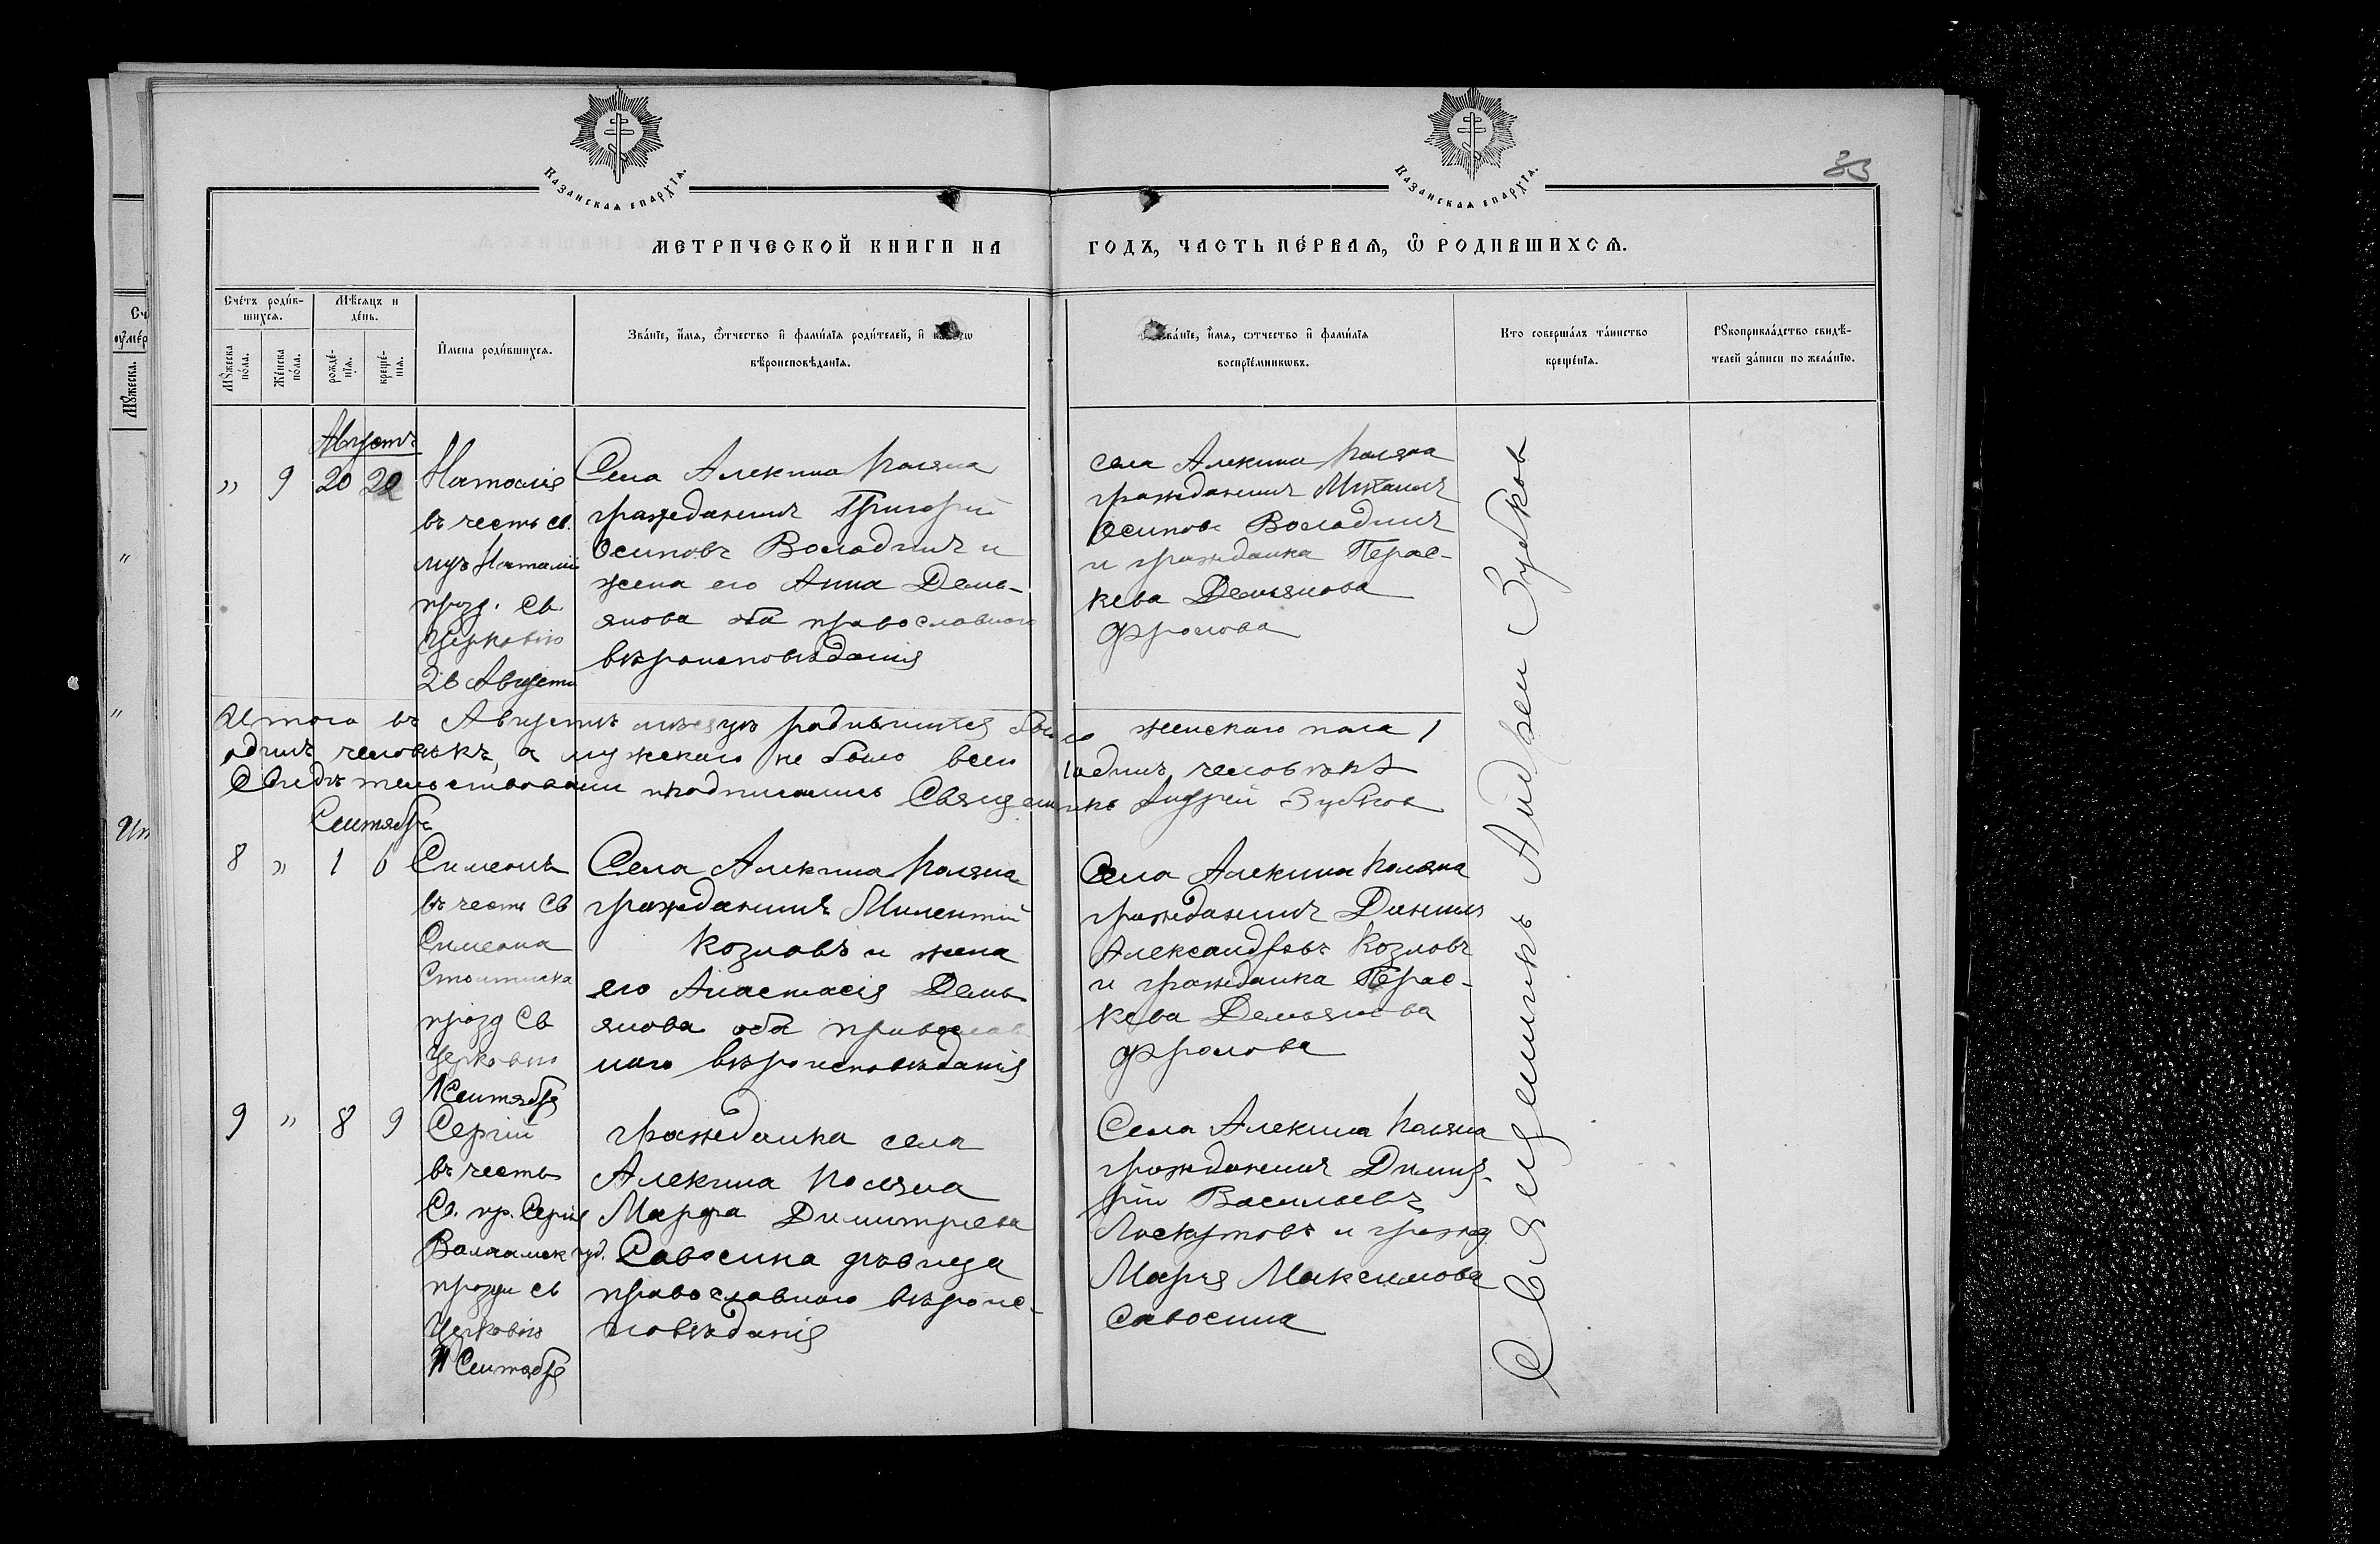 КАЗАНСКАЯ ЕПАРХІЯ.
КАЗАНСКАЯ ЕПАРХІЯ.
33
МЕТРИЧЕСКОЙ КНИГИ НА
ГОДЪ, ЧАСТЬ ПЕ́РВАѦ, Ѽ РОДИВШИХСѦ.
Сче́тъ роди́в-
шихсѧ.
Мѣ́сѧцъ и
де́нь.
Мꙋ́жеска
по́ла.
Же́нска
по́ла.
рожде́-
нїѧ.
креще́-
нїѧ.
И҆мена роди́вшихсѧ.
Зва́нїе, и҆́мѧ, ѻ҆́тчество и҆ фами́лїѧ роди́телей, и҆
вѣроисповѣ́данїѧ.
Зва́нїе, и҆́мѧ, ѻ҆тчество и҆ фами́лїѧ
воспрїе́мникѡвъ.
Кто соверша́лъ та́инство
креще́нїѧ.
Рꙋкоприкла́дство свидѣ́-
телей за́писи по жела́нїю.
Августъ
" 9 20 20
Наталія
въ честь св.
муч Наталіи
празд. Св.
Церковію
26 Августа
Села Алекина Поляна
гражданинъ Григорій
Осиповъ Володинъ и
жена его Анна Демь-
янова оба православнаго
вѣроисповѣданія
села Алекина Поляна
гражданинъ Михаилъ
Осиповъ Володинъ
и гражданка Парас-
кева Демьянова
Фролова
Священникъ Андрей Зубков
Итого въ Августѣ мѣсяцѣ родившихся было женскаго пола 1
одинъ человѣкъ, а мужскаго не было всего 1 одинъ человѣкъ
Свидѣтельствовали и подписались Священникъ Андрей Зубков
Сентябрь
8 " 1 6
Симеонъ
въ честь Св
Симеона
Столпника
празд Св
Церковію
1 Сентября
Села Алекина Поляна
гражданинъ Милентій
Козловъ и жена
его Анастасія Демь
янова оба православ
наго вѣроисповѣданія
Села Алекина Поляна
гражданинъ Даніилъ
Александровъ Козловъ
и гражданка Парас-
кева Демьянова
Фролова
9 " 8 9
Сергій
въ честь
Св. пр. Сергія
Валаамск чуд.
празд св
Церковію
11 Сентября
гражданка села
Алекина Поляна
Марфа Димитріева
Савосина дѣвица
православнаго вѣроис-
повѣданія
Села Алекина Поляна
гражданинъ Димит-
рій Васильевъ
Лоскутовъ и гражд
Марія Максимова
Савосина
Сч
оумер
Мꙋжеска.
"
"
Ит